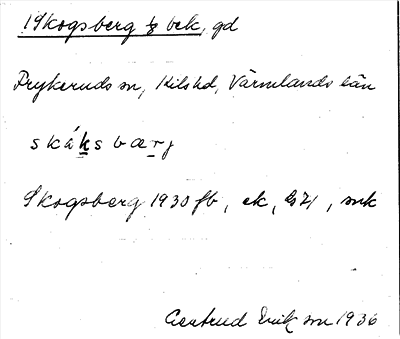 1 Skogsberg ½ bek, gd
Frykeruds sn, Kils hd, Värmlands län
skáksbærj
Skogsberg 1930 fb, ek, GS 21, snk
Gertrud Erikson 1936